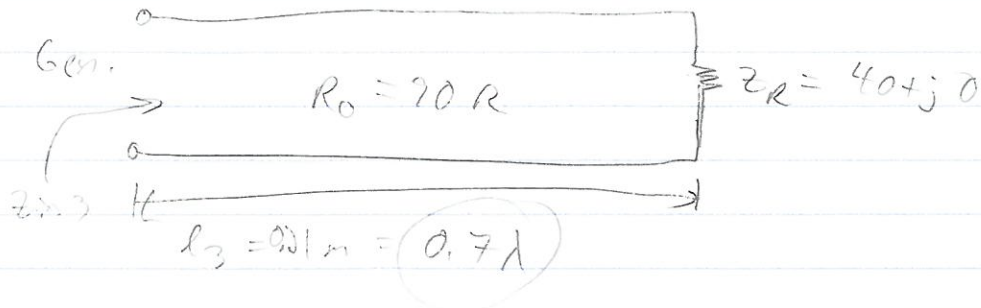 Gen.
R₀ = 20 R
Z_R = 40 + j 0
Zin3
l₃ = 0.21 m = 0.7 λ